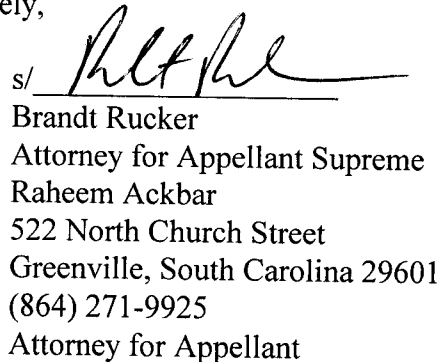 ely,
s/
Brandt Rucker
Attorney for Appellant Supreme
Raheem Ackbar
522 North Church Street
Greenville, South Carolina 29601
(864) 271-9925
Attorney for Appellant